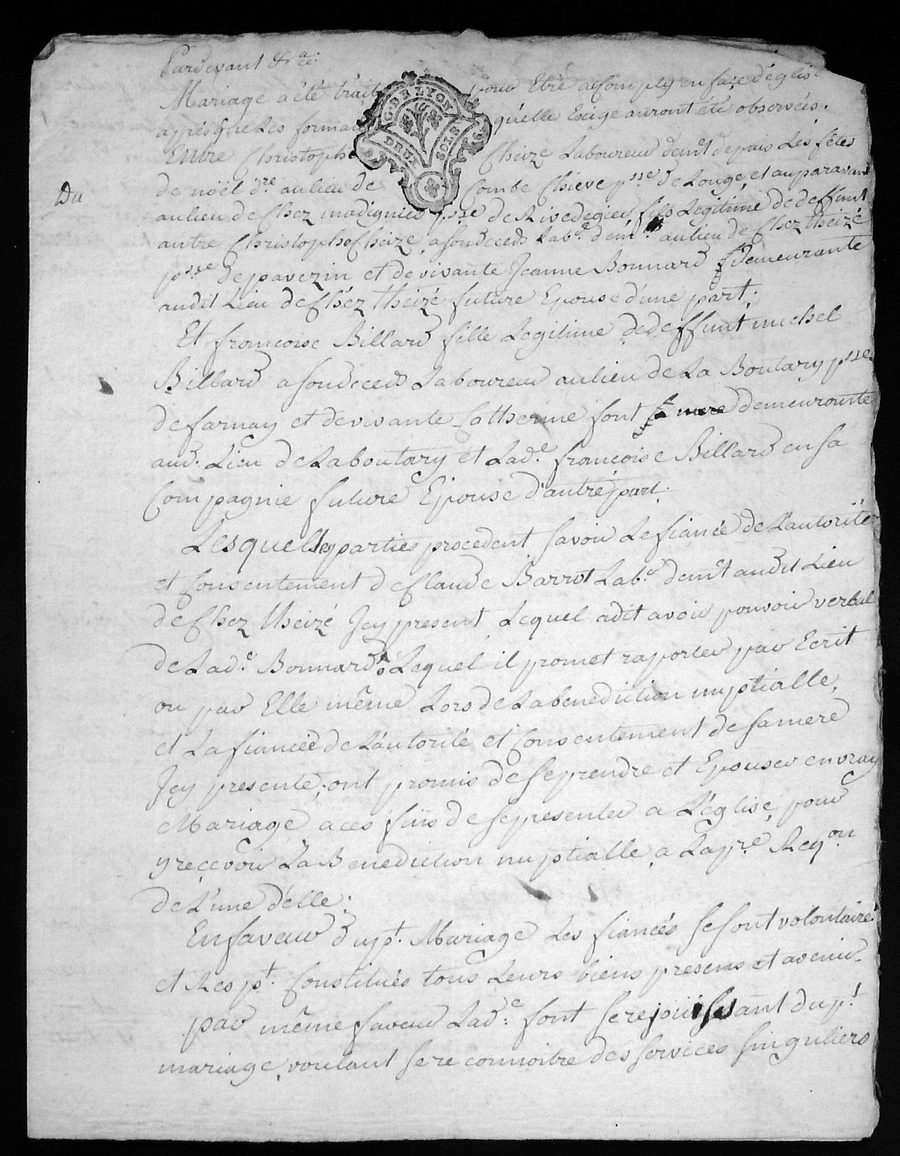 Pardevant &ra:
Mariage a été traité pour Etre acomply en face d'église
apres que Les formali quelle Exige auront été observées.
G. DE LYON
DEUX SOLS
Entre Christophe Theize Laboureur demt depuis Les fêtes
de noël dre au lieu de Combe psse de Longe, et auparavant
Du
au lieu de Chez madignier psse de Rivedegier fils Légitime de deffunt
autre Christophe Theize, a son deceds Labr demt au lieu de Chez theizé
psse de pavezin et de vivante Jeanne Bonnard demeurante
audit Lieu de Chez theizé future Epouse d'une part;
Et francoise Billard fille Legitime de deffunt michel
Billard a son deceds Laboureur au lieu de La Boutary psse
de farnay et de vivante Catherine font sa mere demeurante
aud. Lieu de Laboutary et Lade francoise Billard en sa
Compagnie future Epouse d'autre part.
Lesquelles parties procedent savoir Le fiancé de L'autorité
et Consentement de Claude Barrot Labr demt audit Lieu
de Chez theizé Icy present, Lequel a dit avoir pouvoir verbal
de Lade Bonnard, Lequel il promet raporter par Ecrit
ou par Elle même Lors de Labenediction nuptialle,
et La fiancée de L'autorité et Consentement de sa mere
Icy presente, ont promis de se prendre et Epouser en vray
Mariage a ces fins de se presenter a L'église, pour
y reçevoir La Benediction nuptialle a La pre Reqon
de L'une d'elle;
En faveur du pt. Mariage Les fiancés se sont volontairet
et Respt. Constitués tous Leurs biens presens et avenir
par même faveur Lade. font se rejouissant du pt
mariage, voulant se reconnoitre des services singuliers